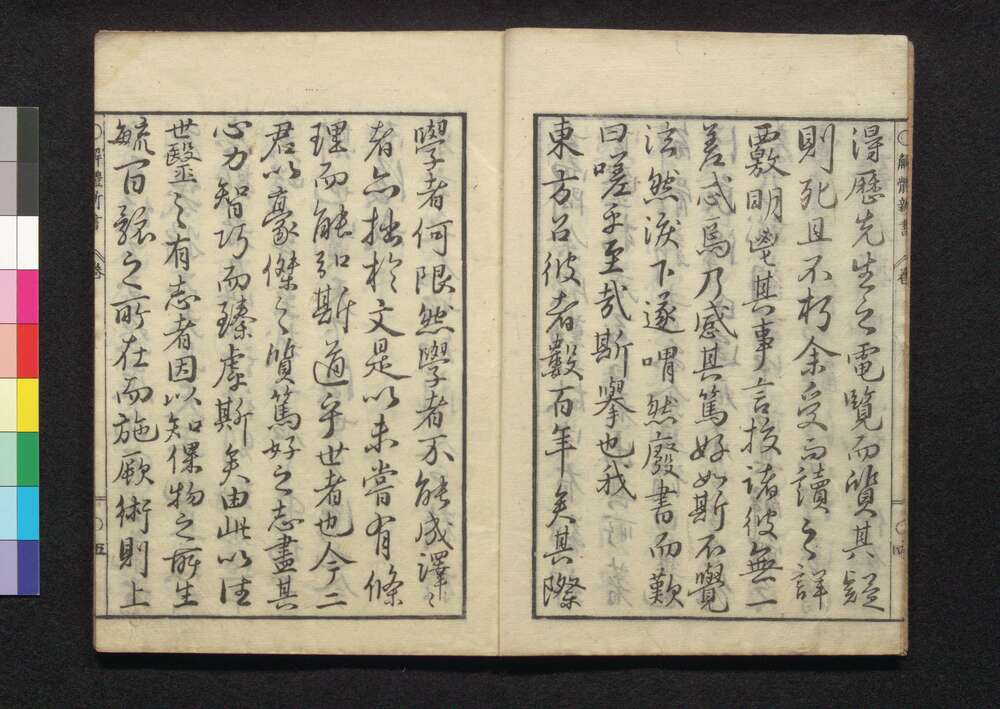 解體新書 卷 〇四
得歷先生之電覽而質其疑
則死且不朽余受而讀之詳
覈明鬯其事言挍諸彼無一
差忒焉乃感其篤好如斯不覺
泫然淚下遂喟然廢書而歎
曰嗟乎至哉斯擧也我
東方召彼者數百年矣其際
學者何限然學者不能成譯々
者亦拙於文是以未嘗有條
理而能弘斯道乎世者也今二
君以豪傑之質篤好之志盡其
心力智巧而臻處斯矣由此以往
世毉之有志者因以知倮物之所生
毓百骸之所在而施厥術則上
解體新書 卷 〇五